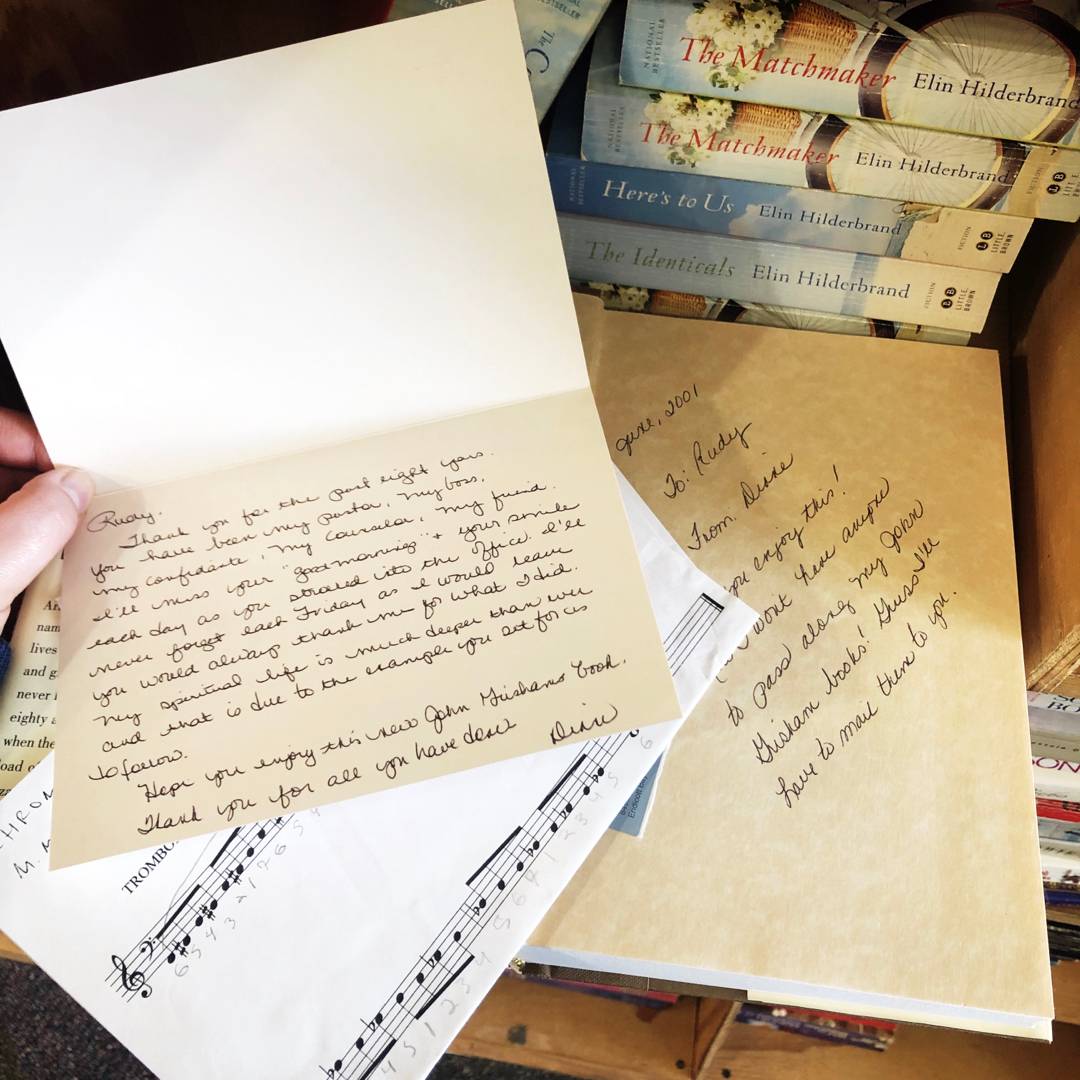 The Matchmaker Elin Hilderbrand
NATIONAL BESTSELLER
The Matchmaker Elin Hilderbrand
Here's to Us Elin Hilderbrand
FICTION LB LITTLE, BROWN
The Identicals Elin Hilderbrand
FICTION LB LITTLE, BROWN
Rudy,
Thank you for the past eight years.
you have been my pastor, my boss,
my confidante, my counselor, my friend.
I'll miss your "good morning" + your smile
each day as you strolled into the office. I'll
never forget each Friday as I would leave
you would always thank me for what I did.
My spiritual life is much deeper than ever
and that is due to the example you set for us
to follow.
Hope you enjoy this new John Grisham book.
Thank you for all you have done
Diane
June, 2001
To: Rudy
From: Diane
you enjoy this!
won't have anyone
to pass along my John
Grisham books! Guess I'll
have to mail them to you.
name
lives
and g
never
eighty
when the
load of
CHROM
M.
TROMBO
6 5 4 3 2 1 2 6 5 4
4 5 1 2 3 4 5 6 1 2 3 4 5 6